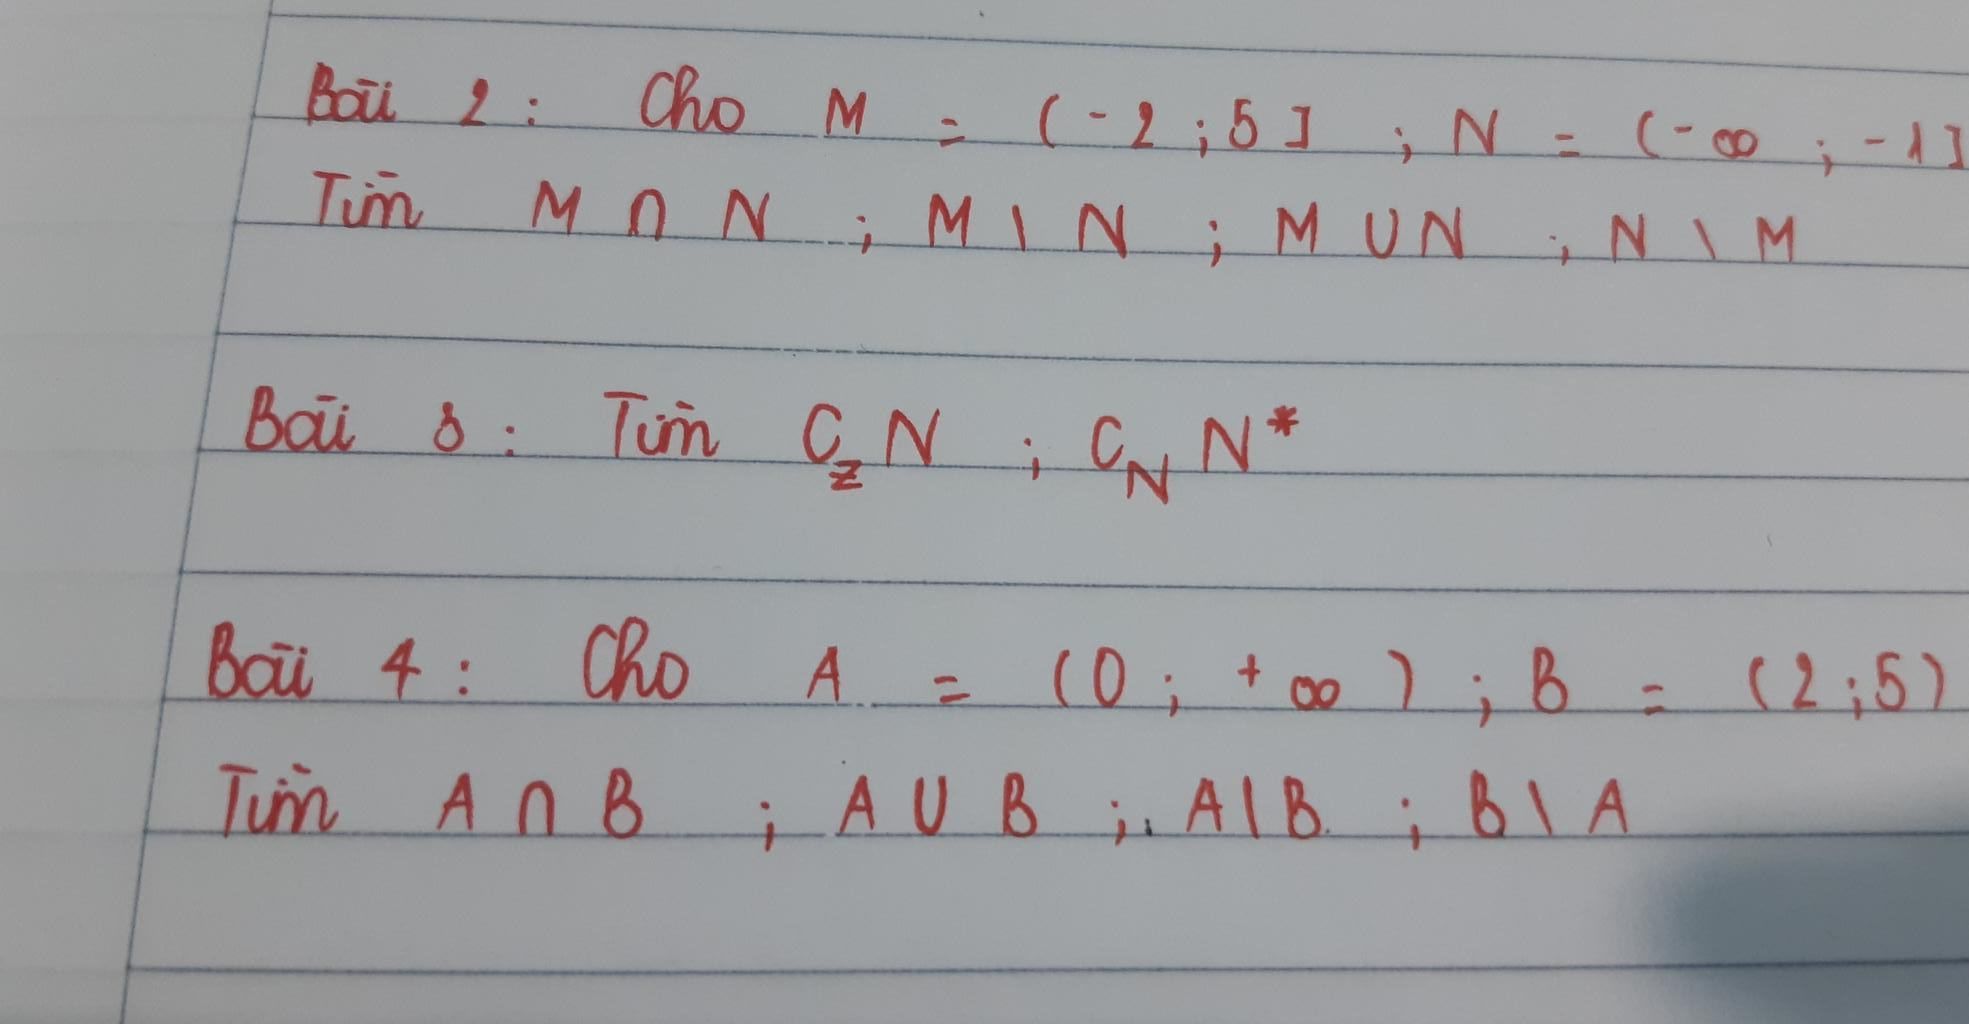 Bài 2 : Cho M = (-2 ; 5] ; N = (-∞ ; -1]
Tìm M ∩ N ; M \ N ; M ∪ N ; N \ M
Bài 3 : Tìm C_Z N ; C_N N*
Bài 4 : Cho A = (0 ; +∞) ; B = (2 ; 5)
Tìm A ∩ B ; A ∪ B ; A \ B ; B \ A